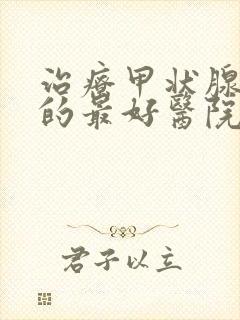 治療甲状腺
的最好醫院
君子以立